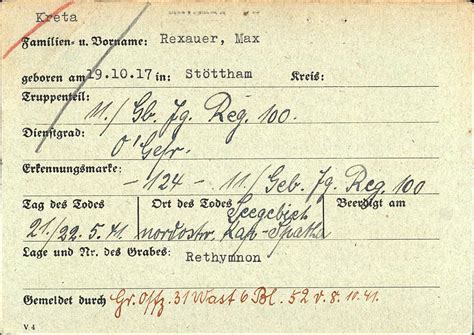 Kreta
Familien- u. Vorname: Rexauer, Max
geboren am 19.10.17 in: Stöttham Kreis:
Truppenteil:
11./ Gb. Jg. Reg. 100.
Dienstgrad:
O'Gefr.
Erkennungsmarke:
- 124 - 11./ Geb. Jg. Reg. 100
Tag des Todes Ort des Todes Beerdigt am
Seegebiet
21./22. 5. 41. nordostw. Kap-Spatha
Lage und Nr. des Grabes:
Rethymnon
Gemeldet durch Gr. Offz. 31 Wast 6 Bl. 52 v. 8. 10. 41.
V 4